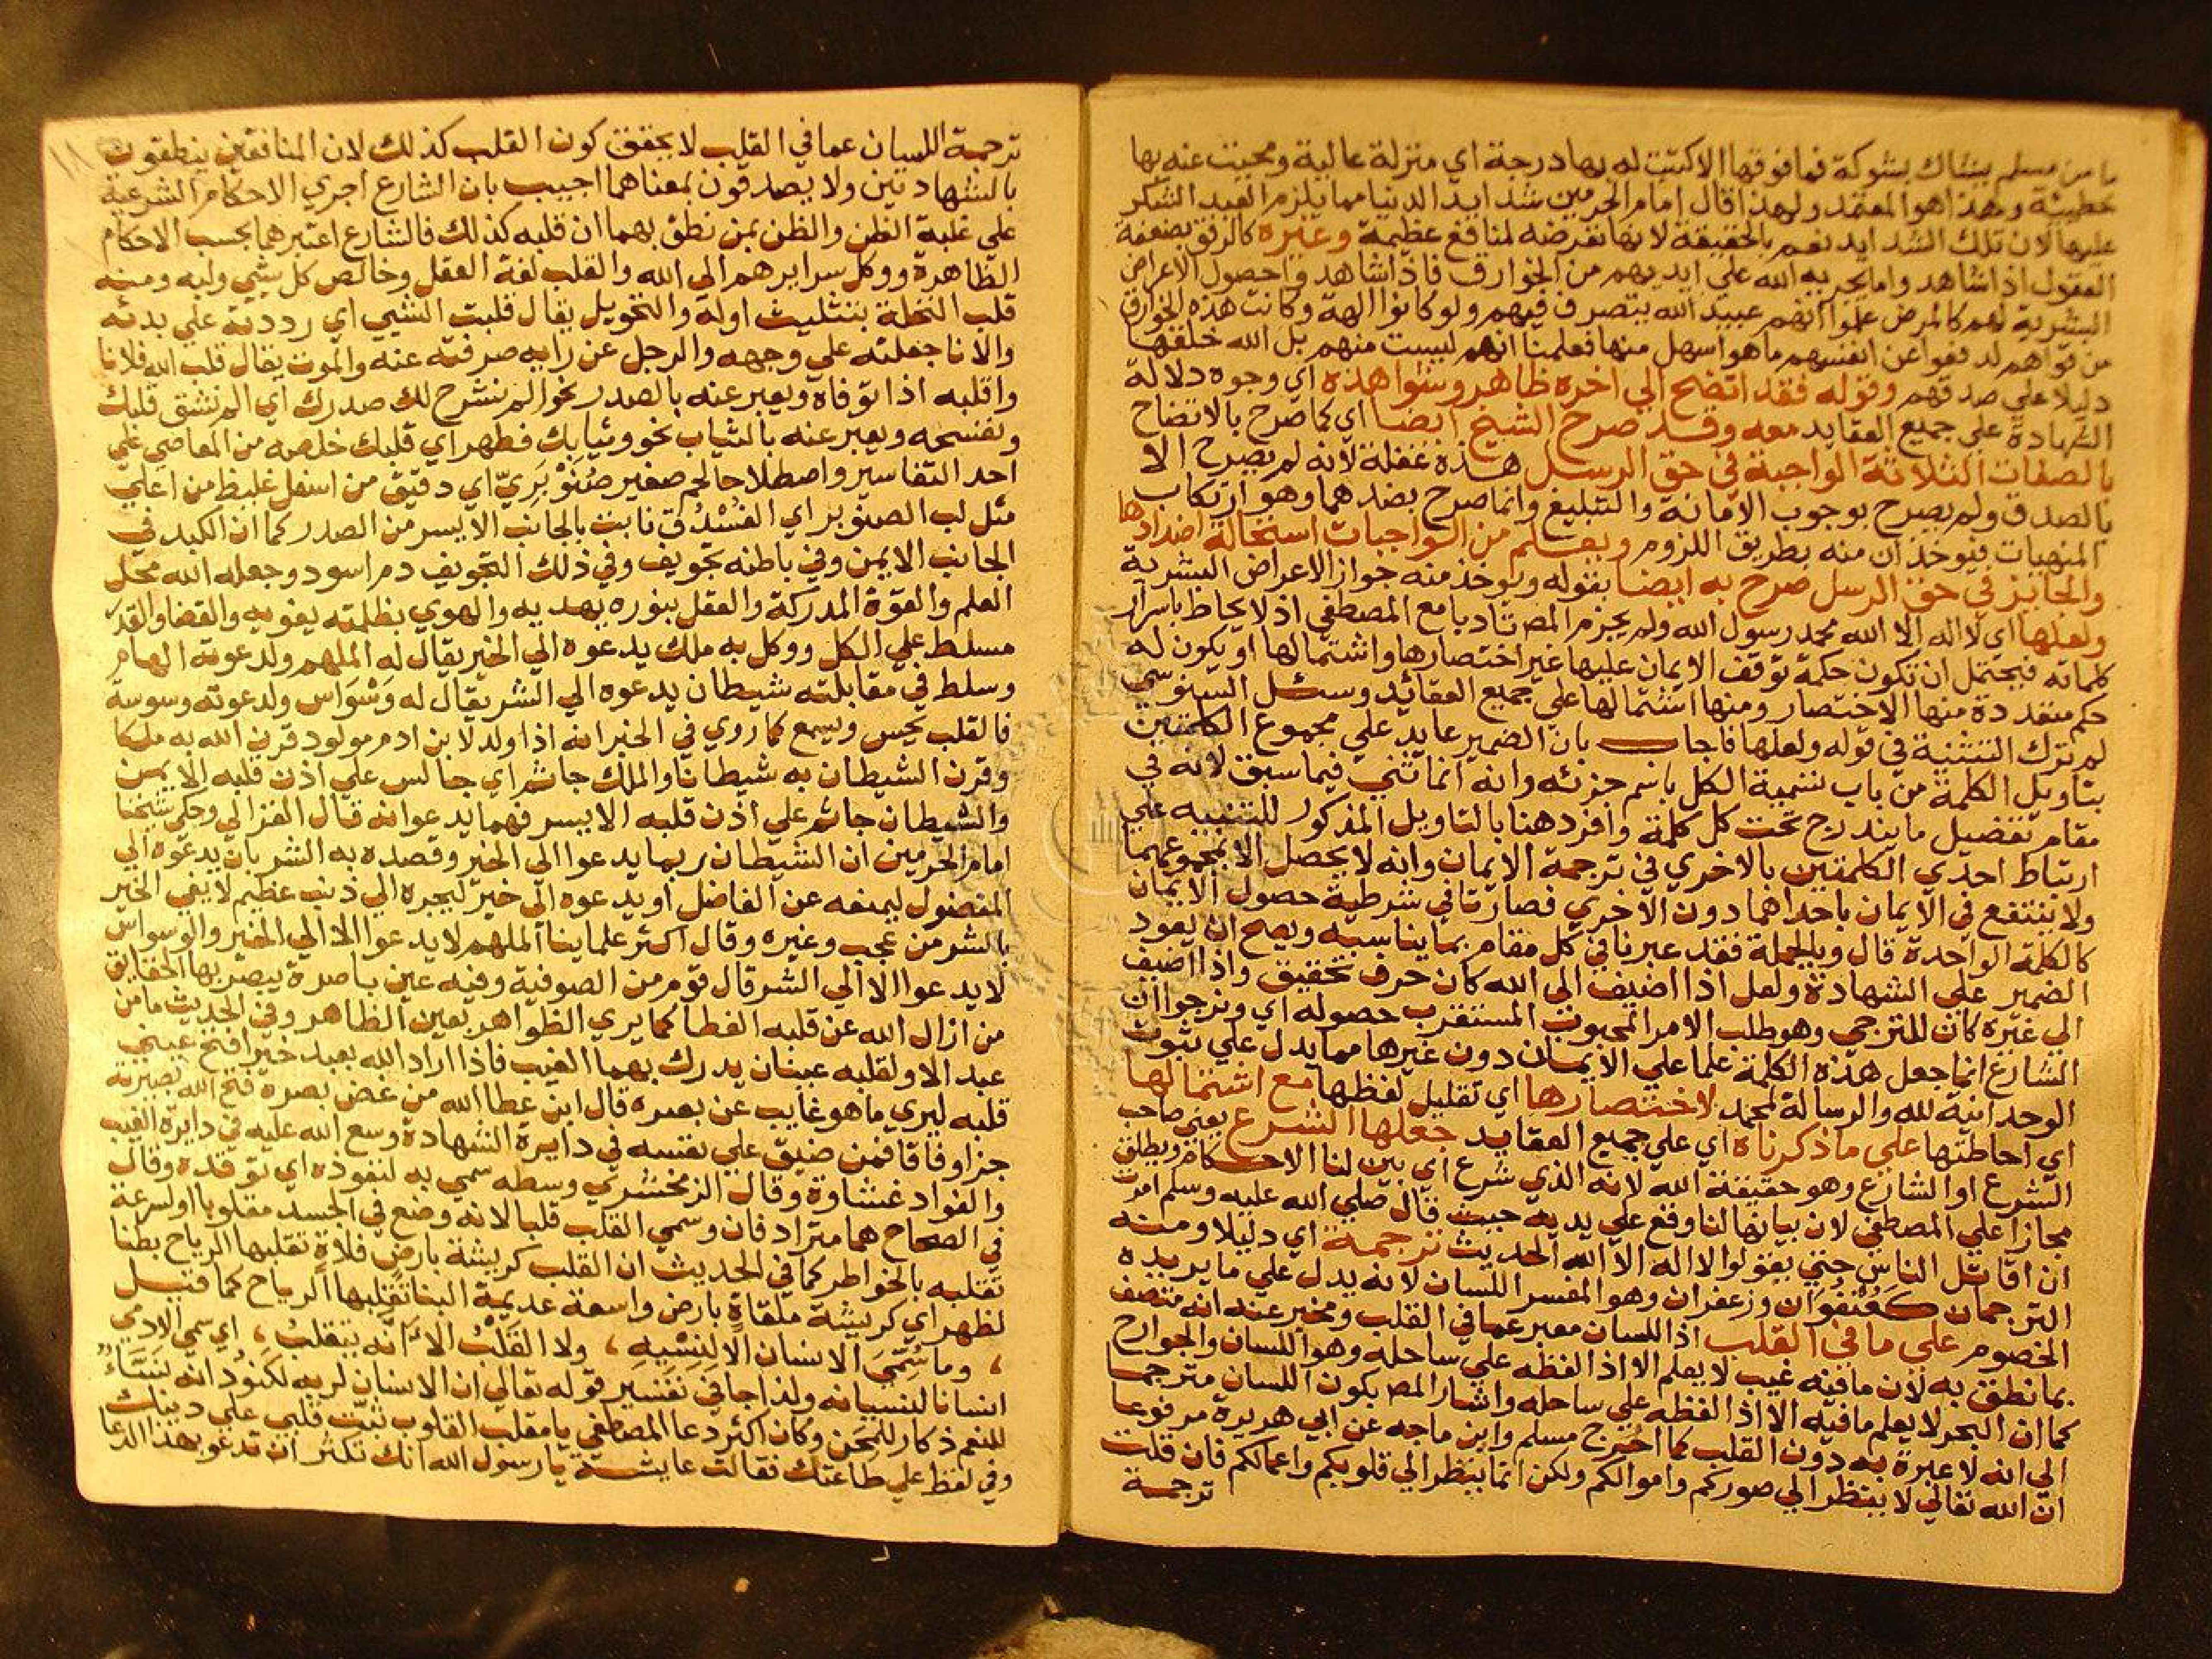 ما من مسلم يشاك بشوكة فما فوقها الا كتبت له بها درجة اي منزلة عالية ومحيت عنه بها
خطيئة وهذا هو المعتمد ولهذا قال امام الحرمين شدايد الدنيا مما يلزم العبد الشكر
عليها لان تلك الشدايد نعم بالحقيقة لانها تعرضه لمنافع عظيمة وغيره كالرفق بضعفة
العقول اذا شاهدوا ما يجريه الله علي ايديهم من الخوارق فاذا شاهدوا حصول الاعراض
البشرية لهم كالمرض علموا انهم عبيد الله يتصرف فيهم ولو كانوا الهة وكانت هذه الخوارق
من قواهم لدفعوا عن انفسهم ما هو اسهل منها فعلمنا انهم ليست منهم بل الله خلقها
دليلا علي صدقهم وقوله فقد اتضح الي اخره ظاهر وشواهده اي وجوه دلالة
الشهادة علي جميع العقايد معه وقد صرح الشيخ ايضا اي كما صرح بالاتضاح
بالصفات الثلاثة الواجبة في حق الرسل هذه غفلة لانه لم يصرح الا
بالصدق ولم يصرح بوجوب الامانة والتبليغ وانما صرح بضدهما وهو ارتكاب
المنهيات فيوخذان منه بطريق اللزوم ويعلم من الواجبات استحالة اضدادها
والجائز في حق الرسل صرح به ايضا بقوله ويوخذ منه جواز الاعراض البشرية
ولعلها اي لا اله الا الله محمد رسول الله ولم يجزم المص تادبا مع المصطفي اذ لا يحاط باسرار
كلماته فيحتمل ان تكون حكمة توقف الايمان عليها غير اختصارها واشتمالها او يكون له
حكم متعددة منها الاختصار ومنها اشتمالها علي جميع العقائد وسئل السنوسي
لم ترك التثنية في قوله ولعلها فاجاب بان الضمير عايد علي مجموع الكلمتين
بتاويل الكلمة من باب تسمية الكل باسم جزئه وانه انما ثني فيما سبق لانه في
مقام تفضيل ما يندرج تحت كل كلمة وافرد هنا بالتاويل المذكور للتنبيه علي
ارتباط احدي الكلمتين بالاخري في ترجمة الايمان وانه لا يحصل الا بمجموعهما
ولا ينتفع في الايمان باحداهما دون الاخري فصارتا في شرطية حصول الايمان
كالكلمة الواحدة قال وبالجملة فقد عبرنا في كل مقام بما يناسبه ويصح ان يعود
الضمير علي الشهادة ولعل اذا اضيف الي الله كان حرف تحقيق واذا اضيف
الي غيره كان للترجي وهو طلب الامر المحبوب المستقرب حصوله اي ونرجوا ان
الشارع انما جعل هذه الكلمة علما علي الايمان دون غيرها مما يدل علي ثبوت
الوحدانية لله والرسالة لمحمد لاختصارها اي تقليل لفظها مع اشتمالها
اي احاطتها علي ما ذكرناه اي علي جميع العقايد جعلها الشرع يعني صاحب
الشرع او الشارع وهو حقيقة الله لانه الذي شرع اي بين لنا الاحكام ويطلق
مجازا علي المصطفي لان بيانها لنا وقع علي يديه حيث قال صلي الله عليه وسلم امرت
ان اقاتل الناس حتي يقولوا لا اله الا الله الحديث ترجمة اي دليلا ومنه
الترجمان كعنفوان وزعفران وهو المفسر اللسان لانه يدل علي ما يريده
الخصوم علي ما في القلب اذ اللسان معبر عما في القلب ومخبر عنه انه متصف
بما نطق به لان ما فيه غيب لا يعلم الا اذا لفظه علي ساحله وهو اللسان والجوارح
كما ان البحر لا يعلم ما فيه الا اذا لفظه علي ساحله واشار المص بكون اللسان مترجما
الي انه لا عبرة به دون القلب كما اخرج مسلم وابن ماجه عن ابي هريرة مرفوعا
ان الله تعالي لا ينظر الي صوركم واموالكم ولكن انما ينظر الي قلوبكم واعمالكم فان قلت
ترجمة
١١
ترجمة اللسان عما في القلب لا يحقق كون القلب كذلك لان المنافقين ينطقون
بالشهادتين ولا يصدقون بمعناهما اجيب بان الشارع اجري الاحكام الشرعية
علي غلبة الظن والظن بمن نطق بهما ان قلبه كذلك فالشارع اعتبرهما بحسب الاحكام
الظاهرة ووكل سرايرهم الي الله والقلب لغة العقل وخالص كل شي ولبه ومنه
قلب النخلة بتثليث اوله والتحويل يقال قلبت الشي اي رددته علي بدئه
والانا جعلته علي وجهه والرجل عن رايه صرفته عنه والموت يقال قلب الله فلانا
واقلبه اذا توفاه ويعبر عنه بالصدر نحو الم نشرح لك صدرك اي الم نشق قلبك
ونفسحه ويعبر عنه بالثياب نحو وثيابك فطهر اي قلبك خلصه من المعاصي علي
احد التفاسير واصطلاحا لحم صغير صنوبري اي دقيق من اسفل غليظ من اعلي
مثل لب الصنوبر اي الفستق نابت بالجانب الايسر من الصدر كما ان الكبد في
الجانب الايمن وفي باطنه تجويف وفي ذلك التجويف دم اسود وجعله الله محل
العلم والقوة المدركة والعقل بنوره يهديه والهوي بظلمته يغويه والقضا والقدر
مسلط علي الكل ووكل به ملك يدعوه الي الخير يقال له الملهم ولدعوته الهام
وسلط في مقابلته شيطان يدعوه الي الشر يقال له وسواس ولدعوته وسوسة
فالقلب يحس ويسمع كما روي في الخبر انه اذا ولد لابن ادم مولود قرن الله به ملكا
وقرن الشيطان به شيطانا والملك جاثم اي جالس علي اذن قلبه الايمن
والشيطان جاثم علي اذن قلبه الايسر فهما يدعوانه قال الغزالي وحكي شيخنا
امام الحرمين ان الشيطان ربما يدعوا الي الخير وقصده به الشر بان يدعوه الي
المفضول ليمنعه عن الفاضل او يدعوه الي خير ليجره الي ذنب عظيم لا يفي الخير
بالشر من عجب وغيره وقال اكثر علماينا الملهم لا يدعوا الا الي الخير والوسواس
لا يدعوا الا الي الشر قال قوم من الصوفية وفيه عين باصرة يبصر بها الحقايق
من ازال الله عن قلبه الغطا كما يري الظواهر بعين الظاهر وفي الحديث ما من
عبد الا ولقلبه عينان يدرك بهما الغيب فاذا اراد الله بعبد خيرا فتح عيني
قلبه ليري ما هو غايب عن بصره قال ابن عطا الله من غض بصره فتح الله بصيرته
جزا وفاقا فمن ضيق علي نفسه في دايرة الشهادة وسع الله عليه في دايرة الغيب
والفواد غشاوة وقال الزمخشري وسطه سمي به لنفوذه اي توقده وقال
في الصحاح هما مترادفان وسمي القلب قلبا لانه وضع في الجسد مقلوبا او لسرعة
تقلبه بالخواطر كما في الحديث ان القلب كريشة بارض فلاة تقلبها الرياح بطنا
لظهر اي كريشة ملقاة بارض واسعة عديمة البنا تقلبها الرياح كما قيل
، وما سمي الانسان الا لنسيه ، ولا القلب الا انه يتقلب ، اي سمي الادمي
انسانا لنسيانه ولذا جا في تفسير قوله تعالي ان الانسان لربه لكنود انه نساء
للنعم ذكار للمحن وكان اكثر دعا المصطفي يا مقلب القلوب ثبت قلبي علي دينك
وفي لفظ علي طاعتك فقالت عايشة يا رسول الله انك تكثر ان تدعو بهذا الدعا